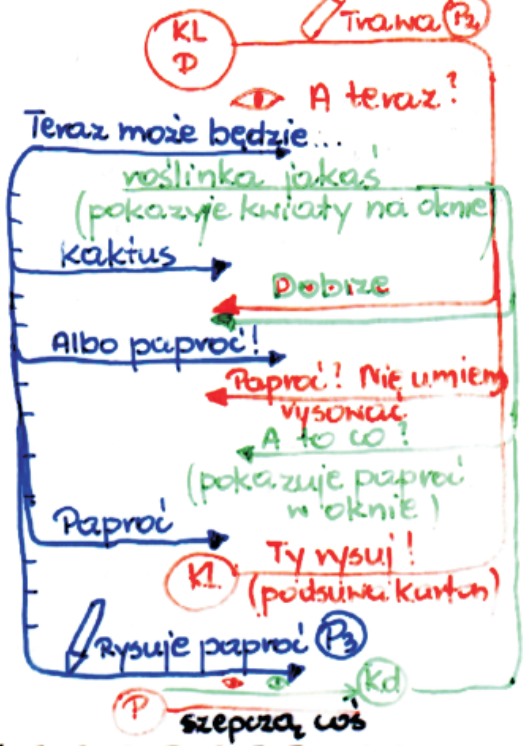 KL
P
Trawa P2
A teraz?
Teraz może będzie...
roślinka jakaś
(pokazuje kwiaty na oknie)
Kaktus
Dobrze
Albo paproć!
Paproć? Nie umiem
rysować
A to co?
(pokazuje paproć
w oknie)
Paproć
Ty rysuj!
Kl
(podsuwa karton)
Rysuje paproć P3
Kd
P
szepczą coś